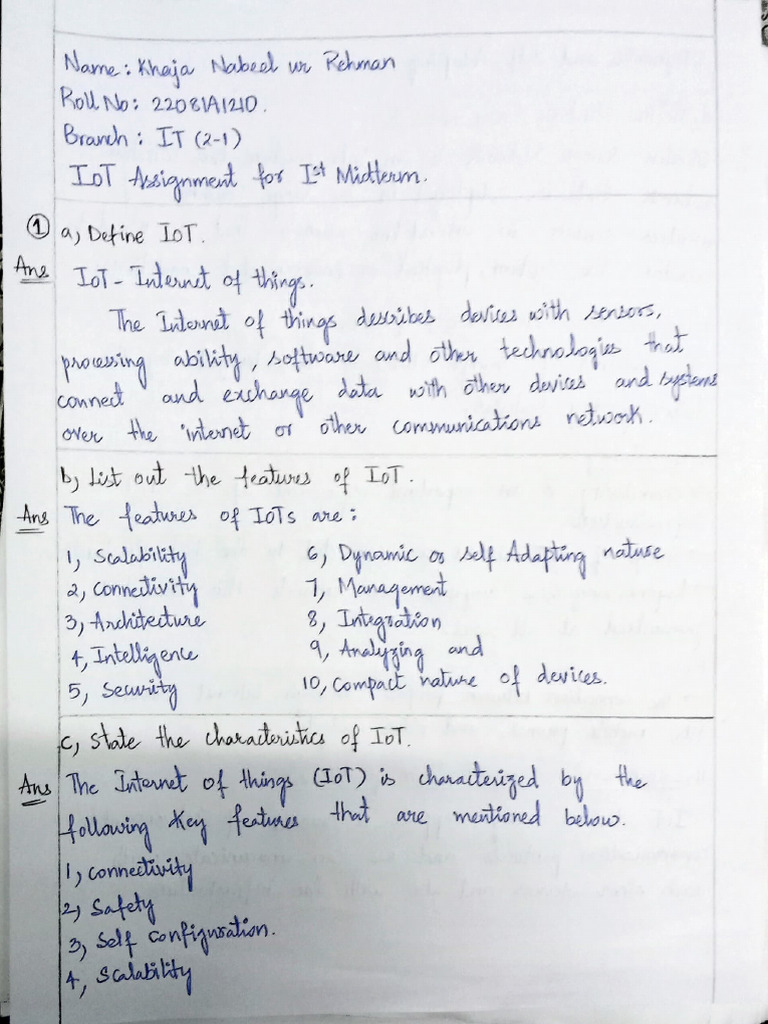 Name: Khaja Nabeel ur Rehman
Roll No: 22081A1210.
Branch: IT (2-1)
IoT Assignment for Ist Midterm.
① a, Define IoT.
Ans IoT - Internet of things.
The Internet of things describes devices with sensors,
processing ability, software and other technologies that
connect and exchange data with other devices and systems
over the internet or other communications network.
b, List out the features of IoT.
Ans The features of IoTs are:
1, Scalability
2, Connectivity
3, Architecture
4, Intelligence
5, Security
6, Dynamic or self Adapting nature
7, Management
8, Integration
9, Analyzing and
10, Compact nature of devices.
c, State the characteristics of IoT.
Ans The Internet of things (IoT) is characterized by the
following key features that are mentioned below.
1, Connectivity
2, Safety
3, Self Configuration.
4, Scalability